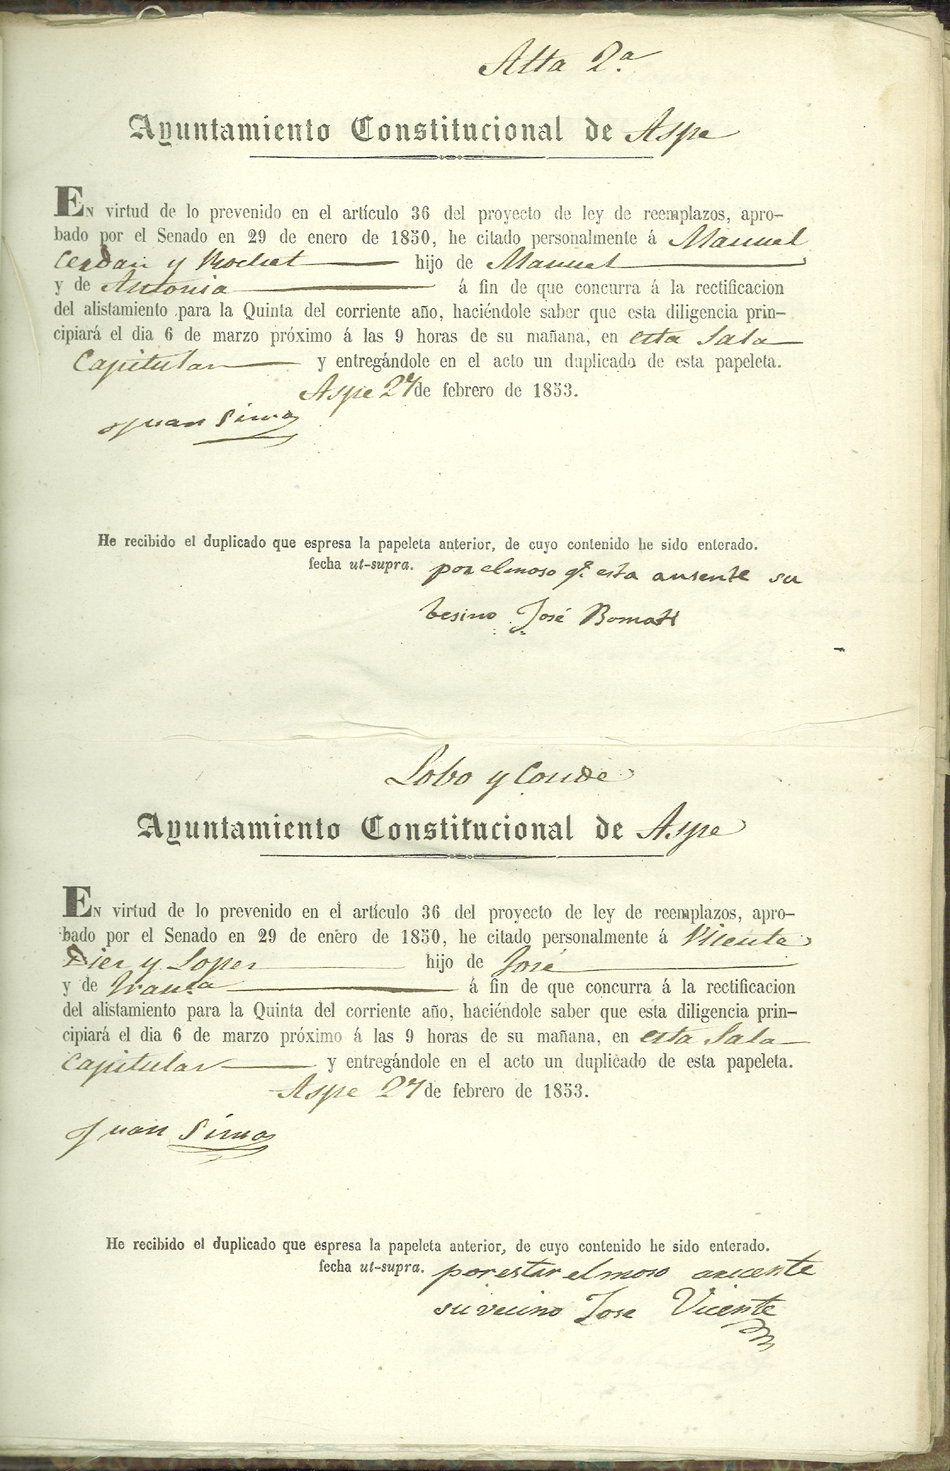 Alta 2.ª
Ayuntamiento Constitucional de Aspe
En virtud de lo prevenido en el artículo 36 del proyecto de ley de reemplazos, apro-
bado por el Senado en 29 de enero de 1850, he citado personalmente á Manuel
Cerdan y hijo de Manuel
y de Antonia á fin de que concurra á la rectificacion
del alistamiento para la Quinta del corriente año, haciéndole saber que esta diligencia prin-
cipiará el dia 6 de marzo próximo á las 9 horas de su mañana, en esta Sala
Capitular y entregándole en el acto un duplicado de esta papeleta.
Aspe 27 de febrero de 1853.
Juan
He recibido el duplicado que espresa la papeleta anterior, de cuyo contenido he sido enterado.
fecha ut-supra. por el moso q.e esta ausente su
besino José
Lobo y Conde
Ayuntamiento Constitucional de Aspe
En virtud de lo prevenido en el artículo 36 del proyecto de ley de reemplazos, apro-
bado por el Senado en 29 de enero de 1850, he citado personalmente á Vicente
y Lopez hijo de José
y de Fran.ca á fin de que concurra á la rectificacion
del alistamiento para la Quinta del corriente año, haciéndole saber que esta diligencia prin-
cipiará el dia 6 de marzo próximo á las 9 horas de su mañana, en esta Sala
Capitular y entregándole en el acto un duplicado de esta papeleta.
Aspe 27 de febrero de 1853.
Juan
He recibido el duplicado que espresa la papeleta anterior, de cuyo contenido he sido enterado.
fecha ut-supra. por estar el moso aucente
su vecino Jose Vicente